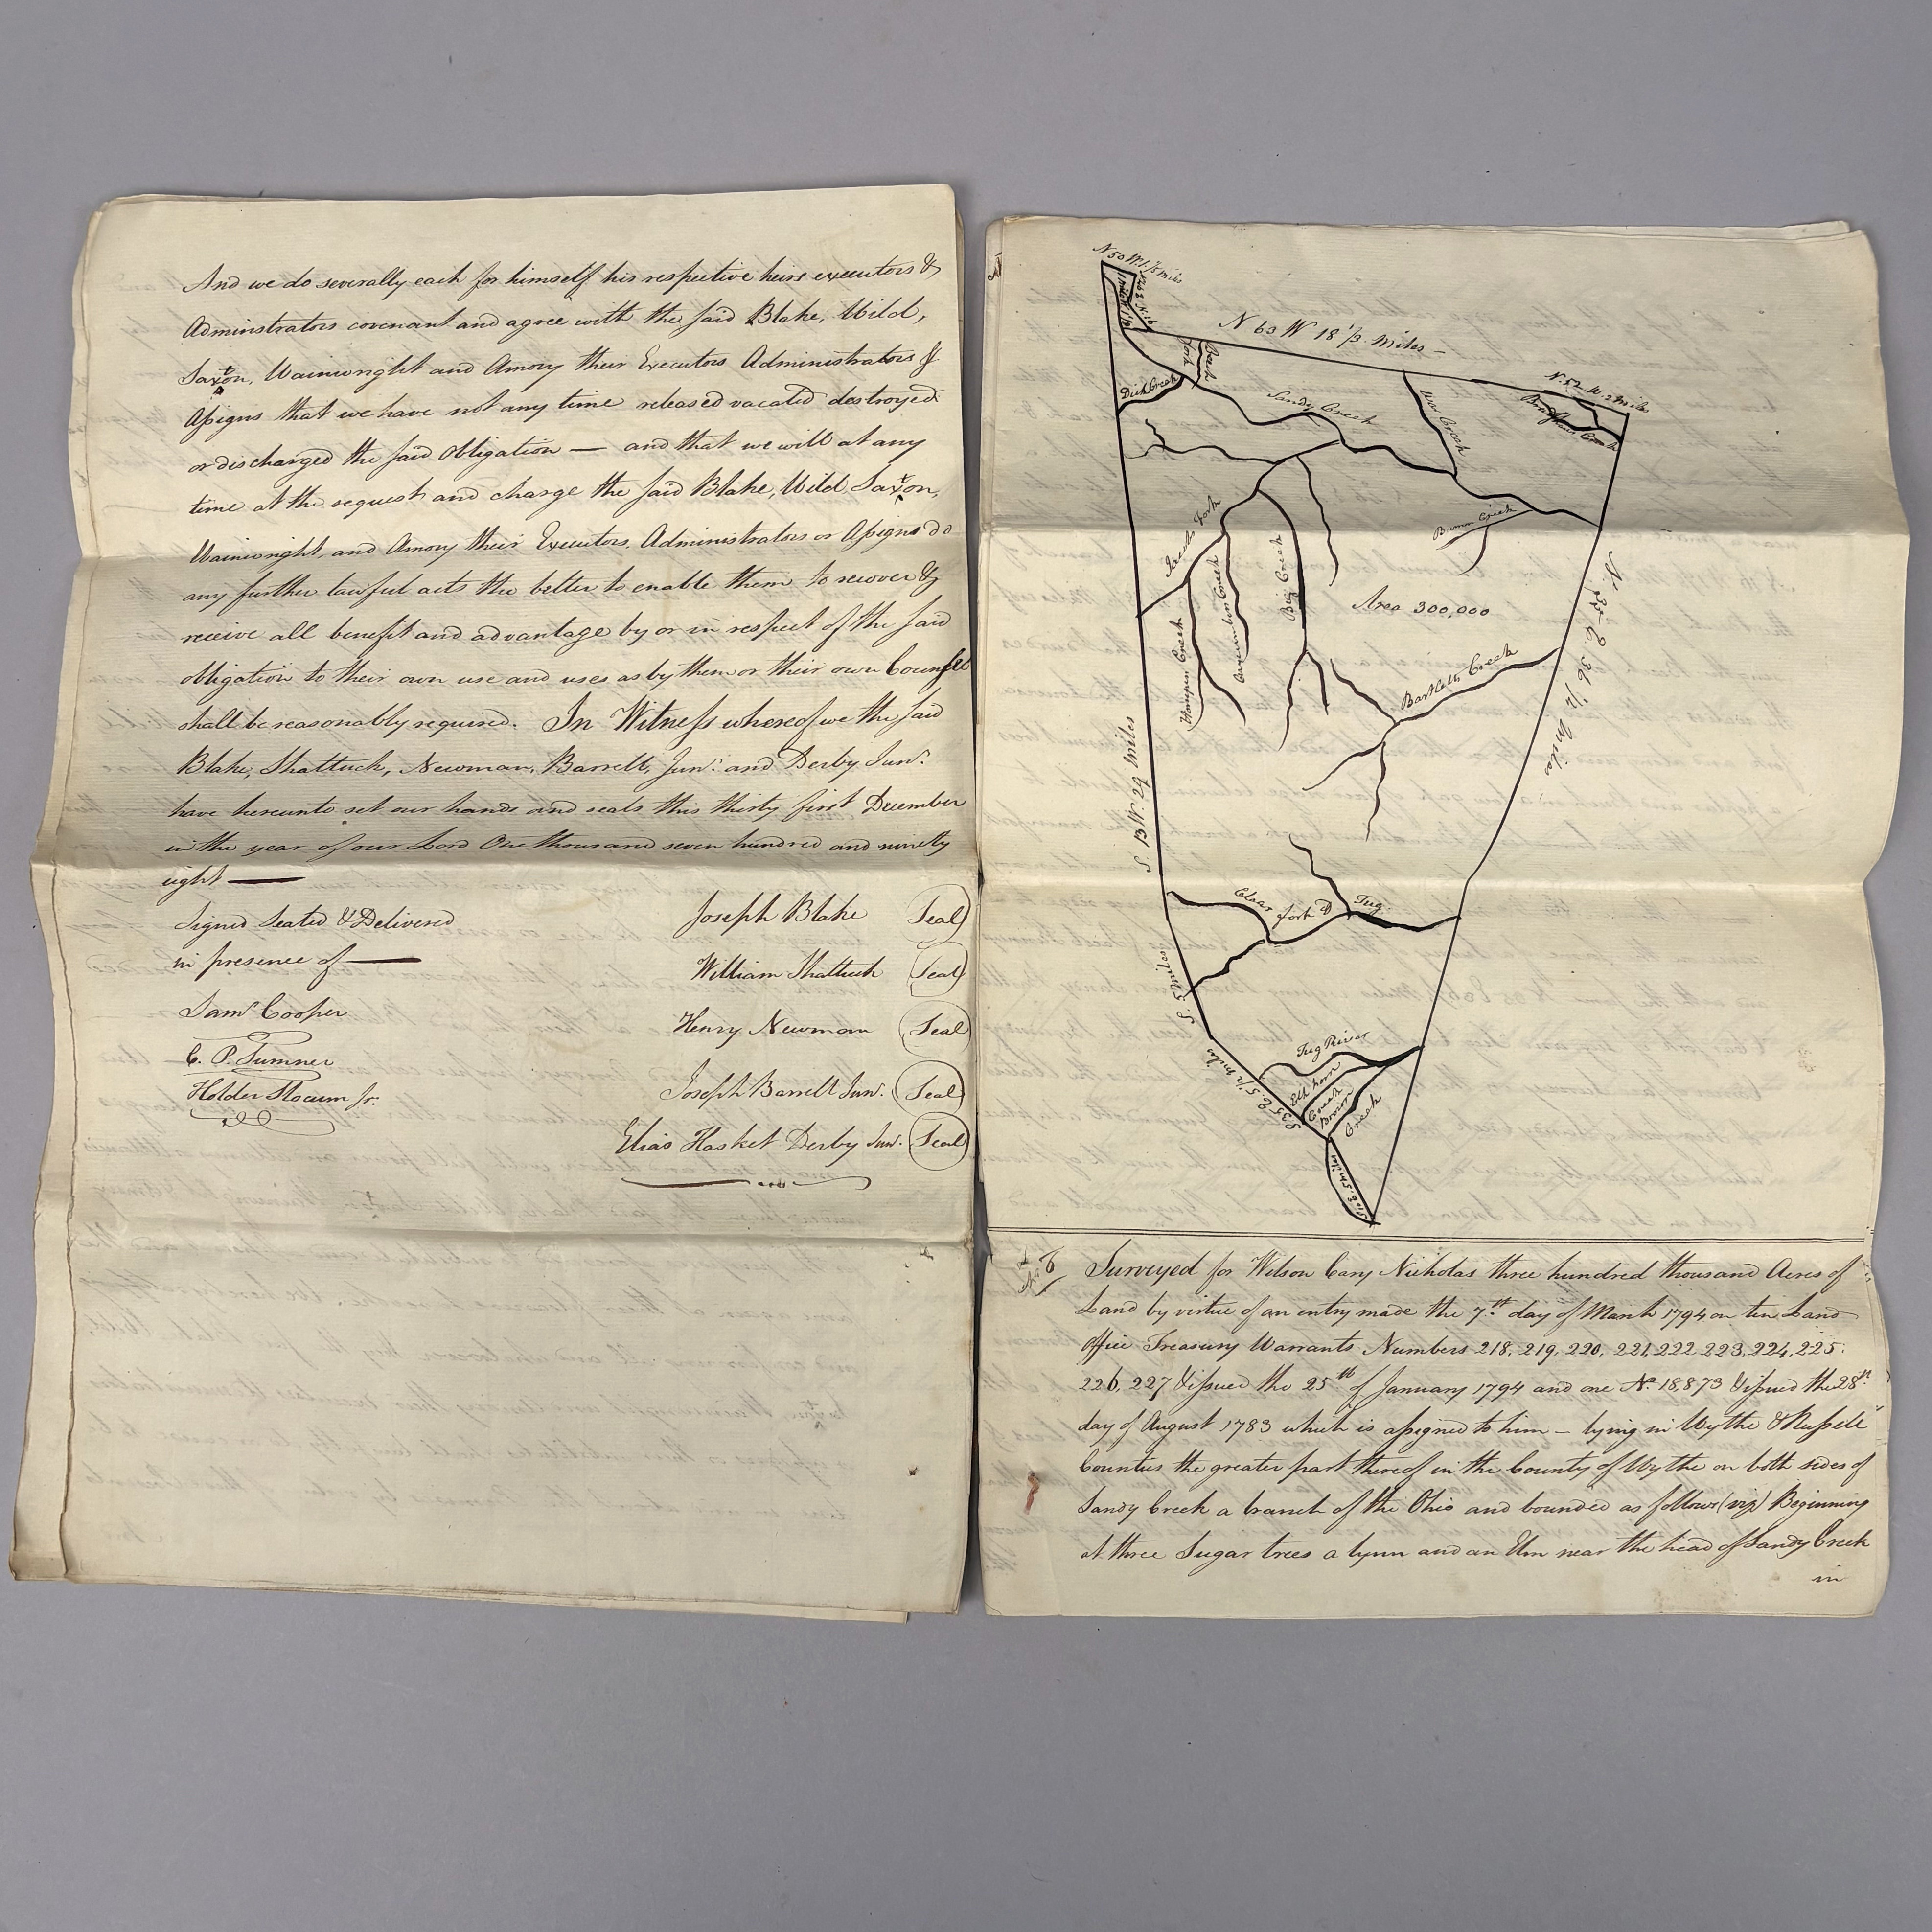 And we do severally each for himself his respective heirs executors &
Adminstrators covenant and agree with the said Blake, Wild,
Saxton, Wainwright and Amory their Executors Administrators &
Assigns that we have not any time released vacated destroyed
or discharged the said Obligation — and that we will at any
time at the request and charge the said Blake, Wild, Saxton,
Wainwright, and Amory their Executors, Administrators or Assigns do
any further lawful acts the better to enable them to recover &
receive all benefit and advantage by or in respect of the said
obligation to their own use and uses as by them or their own Counsel
shall be reasonably required. In Witness whereof we the said
Blake, Shattuck, Newman, Barrett, Junr. and Derby Junr.
have hereunto set our hands and seals this thirty first December
in the year of our Lord One thousand seven hundred and ninety
eight —
Signed Sealed & Delivered
in presence of —
Saml Cooper
C. P. Sumner
Holder Slocum Jr.
Joseph Blake Seal
William Shattuck Seal
Henry Newman Seal
Joseph Barrett Junr. Seal
Elias Hasket Derby Junr. Seal
N 50 W. 1 1/5 miles
N 63 W 18 1/3 miles —
N. 52 W. 2 miles
Dick Creek
Fork
Sandy Creek
Creek
Creek
Jacobs Fork
Brown Creek
Big Creek
Area 300,000
Cucumber Creek
Harmon Creek
Bartletts Creek
N. 35 E 36 1/2 miles
S. 13 W. 27 miles
Clear fork of Tug.
S. 5 miles
Tug River
S 35 E. 5 1/2 miles
Elkhorn
Creek
Brown
Creek
5 miles
Surveyed for Wilson Cary Nicholas three hundred thousand Acres of
Land by virtue of an entry made the 7th day of March 1794 on ten Land
Office Treasury Warrants Numbers 218, 219, 220, 221, 222, 223, 224, 225.
226, 227 & issued the 25th of January 1794 and one No. 18,873 & issued the 28th
day of August 1783 which is assigned to him — lying in Wythe & Russell
Counties the greater part thereof in the County of Wythe on both sides of
Sandy Creek a branch of the Ohio and bounded as follows (viz) Beginning
at three Sugar trees a lynn and an Elm near the head of Sandy Creek
in